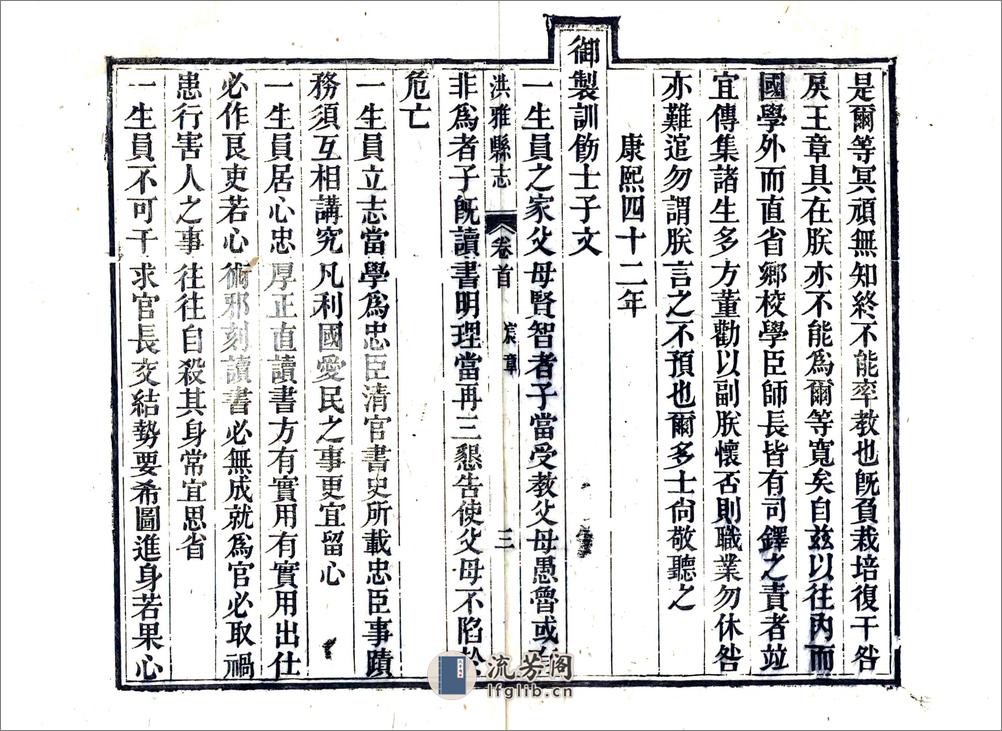 是爾等冥頑無知終不能率教也旣負栽培復干咎
戾王章具在朕亦不能爲爾等寬矣自兹以往內而
國學外而直省鄉校學臣師長皆有司鐸之責者竝
宜傳集諸生多方董勸以副朕懷否則職業勿休咎
亦難逭勿謂朕言之不預也爾多士尙敬聽之
康熙四十二年
御製訓飭士子文
一生員之家父母賢智者子當受教父母愚魯或有
洪雅縣志 卷首 宸章 三
非爲者子旣讀書明理當再三懇告使父母不陷於
危亡
一生員立志當學爲忠臣清官書史所載忠臣事蹟
務須互相講究凡利國愛民之事更宜留心
一生員居心忠厚正直讀書方有實用有實用出仕
必作良吏若心術邪刻讀書必無成就爲官必取禍
患行害人之事往往自殺其身常宜思省
一生員不可干求官長交結勢要希圖進身若果心
流芳閣
lfglib.cn